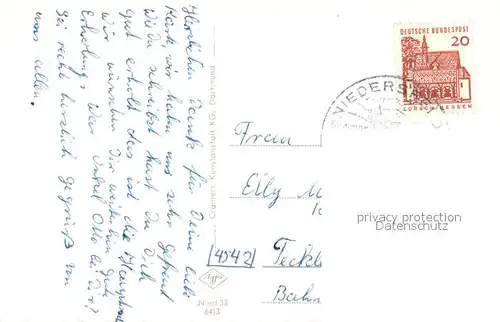 Herzlichen Dank für Deine liebe
Karte, wir haben uns sehr gefreut
Wie du schreibst hast Du Dich
gut erholt das ist die Hauptsache
Wir wünschen Dir weiterhin gute
Erholung. War Onkel Otto bei Dir?
Sei recht herzlich gegrüßt von
uns allen.
Cramers Kunstanstalt KG, Dortmund
DEUTSCHE BUNDESPOST
20
LORSCH/HESSEN
NIEDERS
Frau
Elly M
(4542)
Teckl
Bahn
Agfa
privacy protection
Datenschutz
64/3